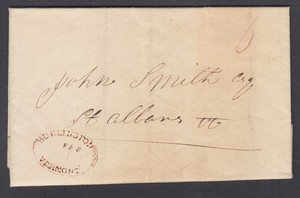 John Smith Esq
St Albans Vt
BURLINGTON
FEB
VERMONT